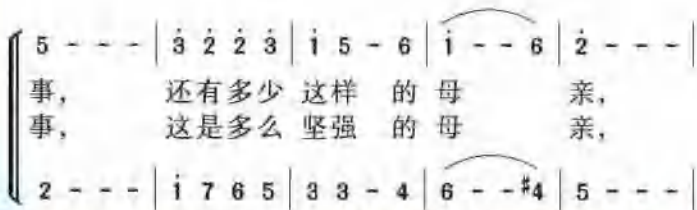 5 - - - | 3̇ 2̇ 2̇ 3̇ | 1̇ 5 - 6 | 1̇ - - 6 | 2̇ - - - |
事， 还有多少 这样 的 母 亲，
事， 这是多么 坚强 的 母 亲，
2 - - - | 1̇ 7 6 5 | 3 3 - 4 | 6 - - #4 | 5 - - - |